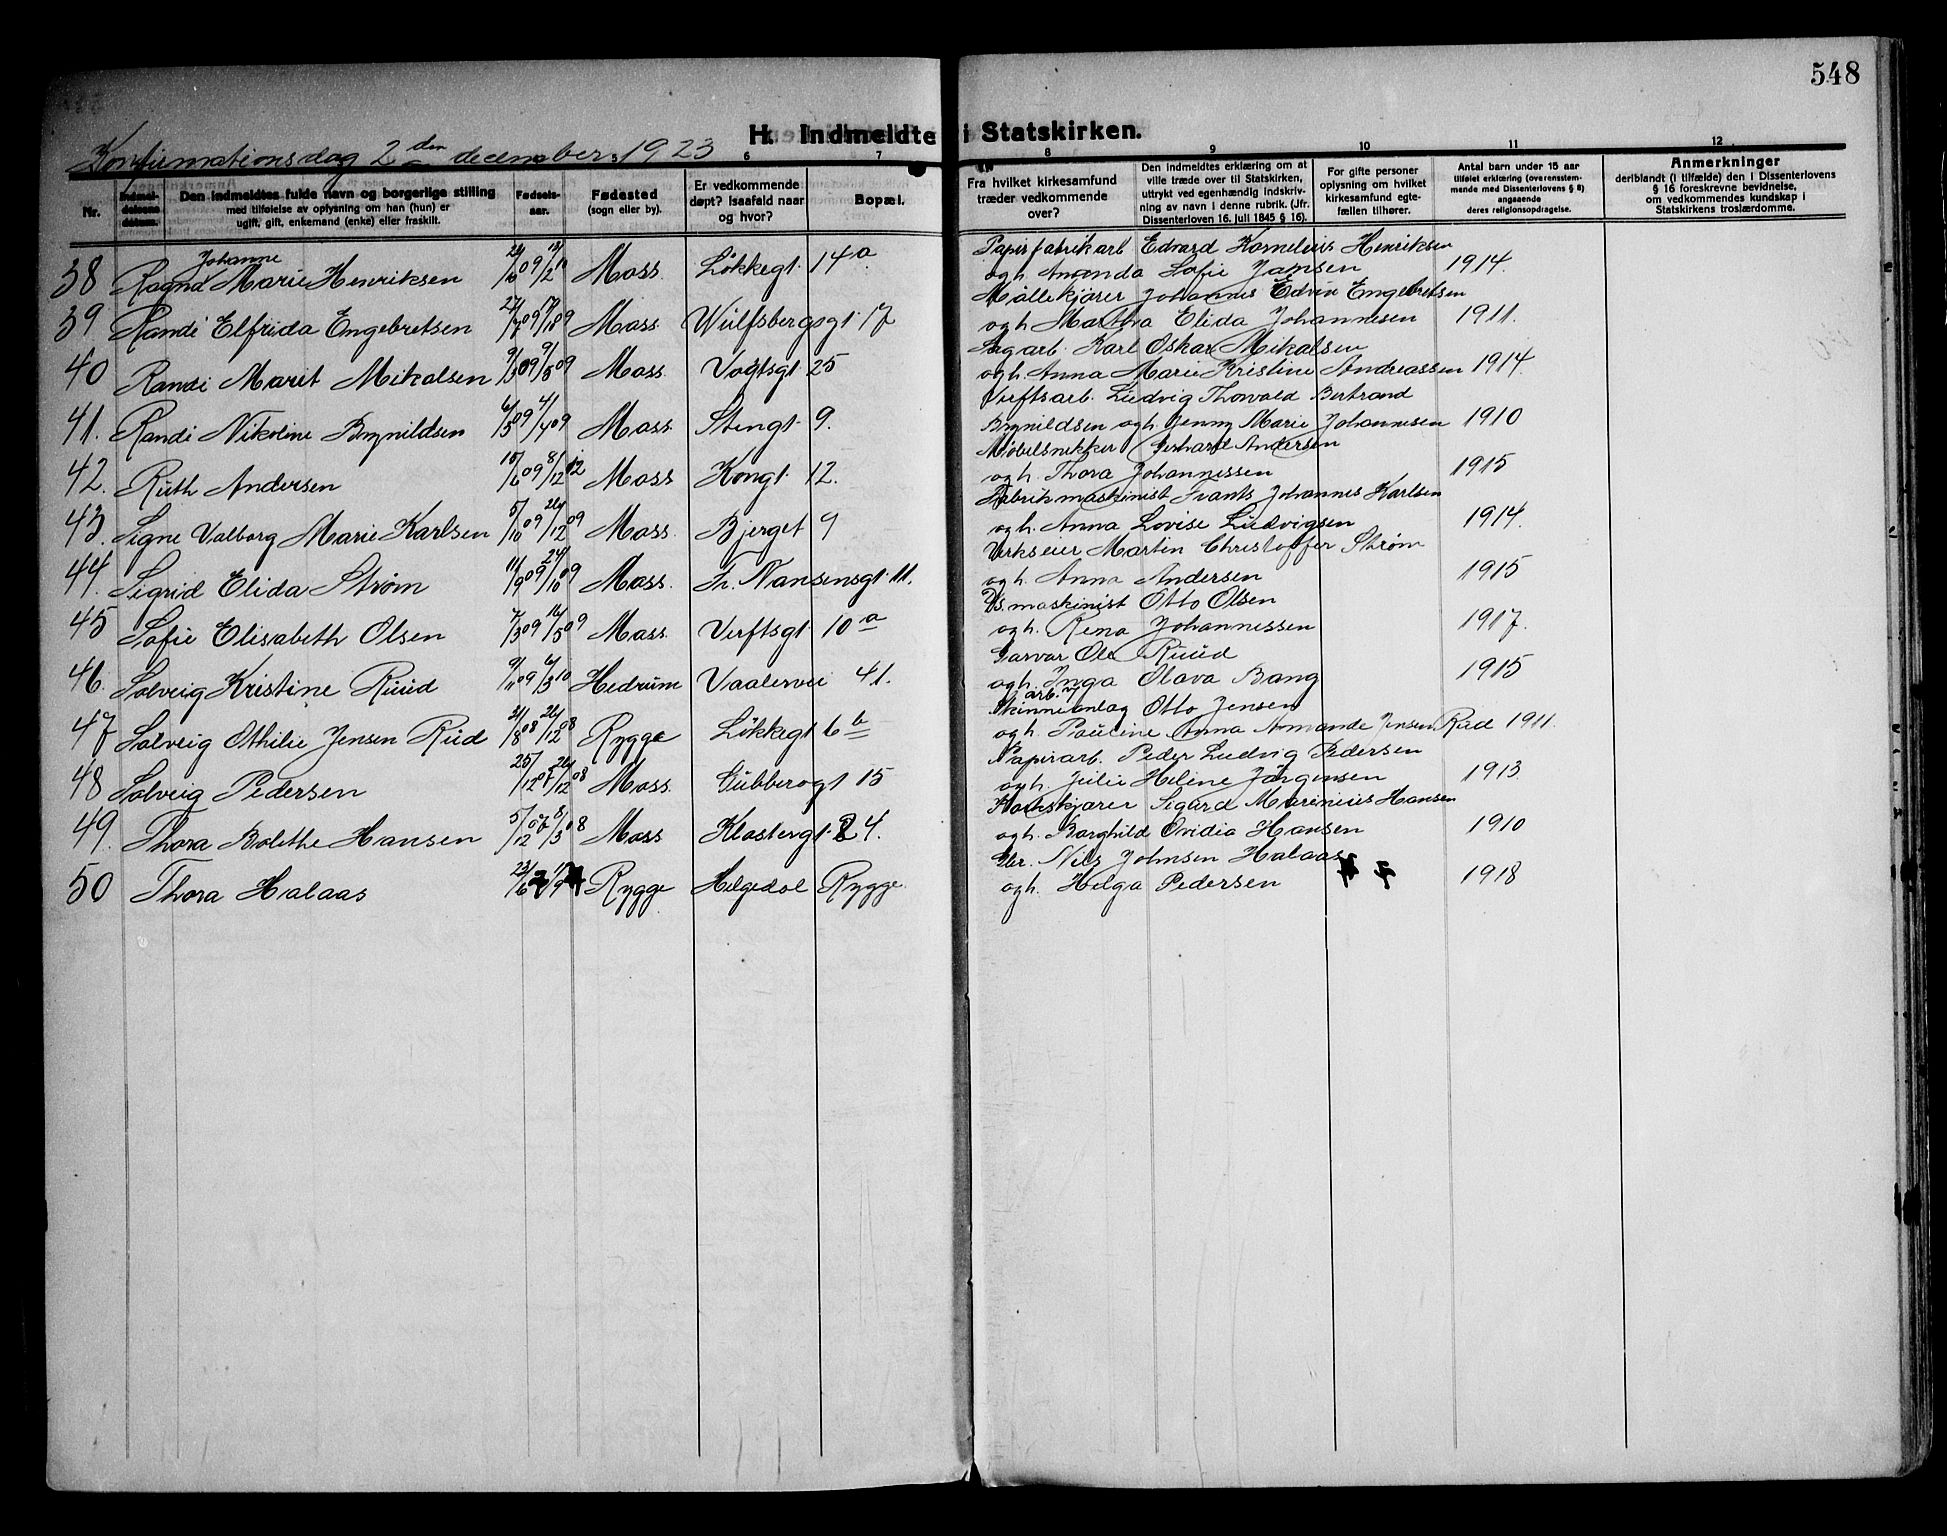 548
H. Indmeldte i Statskirken.
Konfirmationsdag 2 den december 1923
6 7 8 9 10 11 12
Nr.
Indmeldelsens datum.
Den indmeldtes fulde navn og borgerlige stilling
med tilføielse av oplysning om han (hun) er
ugift, gift, enkemand (enke) eller fraskilt.
Fødsels-
aar.
Fødested
(sogn eller by).
Er vedkommende
døpt? Isaafald naar
og hvor?
Bopæl.
Fra hvilket kirkesamfund
træder vedkommende
over?
Den indmeldtes erklæring om at
ville træde over til Statskirken,
uttrykt ved egenhændig indskriv-
ning av navn i denne rubrik. (Jfr.
Dissenterloven 16. juli 1845 § 16).
For gifte personer
oplysning om hvilket
kirkesamfund egte-
fællen tilhører.
Antal barn under 15 aar
tilføiet erklæring (overensstem-
mende med Dissenterlovens § 8)
angaaende
deres religionsopdragelse.
Anmerkninger
deriblandt (i tilfælde) den i Dissenterlovens
§ 16 foreskrevne bevidnelse,
om vedkommendes kundskap i
Statskirkens troslærdomme.
Johanne
38 Ragna Marie Henriksen Moss Løkkegt. 14 a
Papirfabrikarb Edvard Kornelius Henriksen
og h. Amanda Sofie Jansen 1914.
39 Randi Elfrida Engebretsen 27/7 09 Moss Wulfsbergsgt. 17
Møllekjører Johannes Edvin Engebretsen
og h. Martha Elida Johannesen 1911.
40 Randi Marit Mikalsen 9/3 09 9/5 09 Moss Vogtsgt 25
Sagarb. Karl Oskar Mikalsen
og h. Anna Marie Kristine Andreassen 1914.
41. Randi Nikoline Brynildsen 09 4/4 09 Moss Stengt. 9.
Verftsarb. Ludvig Thorvald Bertrand
Brynildsen og h. Jenny Marie Johannesen 1910
42. Ruth Andersen 09 8/12 12 Moss Kongt. 12.
Møbelsnekker Gerhard Andersen
og h. Thora Johannessen 1915
43. Signe Valborg Marie Karlsen 5/10 09 26/12 09 Moss. Bjerget 9
Fabrikmaskinist Frants Johannes Karlsen
og h. Anna Lovise Ludvigsen 1914.
44. Sigrid Elida Strøm 11/9 09 24/10 09 Moss. Fr. Nansensgt. 11.
Verkseier Martin Christoffer Strøm
og h. Anna Andersen 1915
45 Sofie Elisabeth Olsen 7/3 09 16/5 09 Moss. Verftsgt. 10 a
Ds. maskinist Otto Olsen
og h. Rena Johannessen 1917.
46. Solveig Kristine Ruud 9/11 09 6/3 10 Hedrum Vaalervei 41.
Garvar Ole Ruud
og h. Inga Olava Bang 1915
47 Solveig Othilie Jensen Rud 21/8 08 26/12 08 Rygge Løkkegt 6 b
arb. v
Skinneanlæg Otto Jensen
og h. Pauline Anna Amande Jensen Rud 1911.
48 Solveig Pedersen 25/12 07 26/12 08 Moss. Gubberogt 15
Papirarb. Peder Ludvig Pedersen
og h. Julie Helene Jørgensen 1913.
49. Thora Bolethe Hansen 5/12 07 8/3 08 Moss Klostergt. 24.
Sigurd Marinius Hansen
og h. Borghild Ovidia Hansen 1910
50 Thora Halaas 23/6 Rygge Helgedal Rygge.
Gbr. Nils Johnsen Halaas
og h. Helga Pedersen 1918